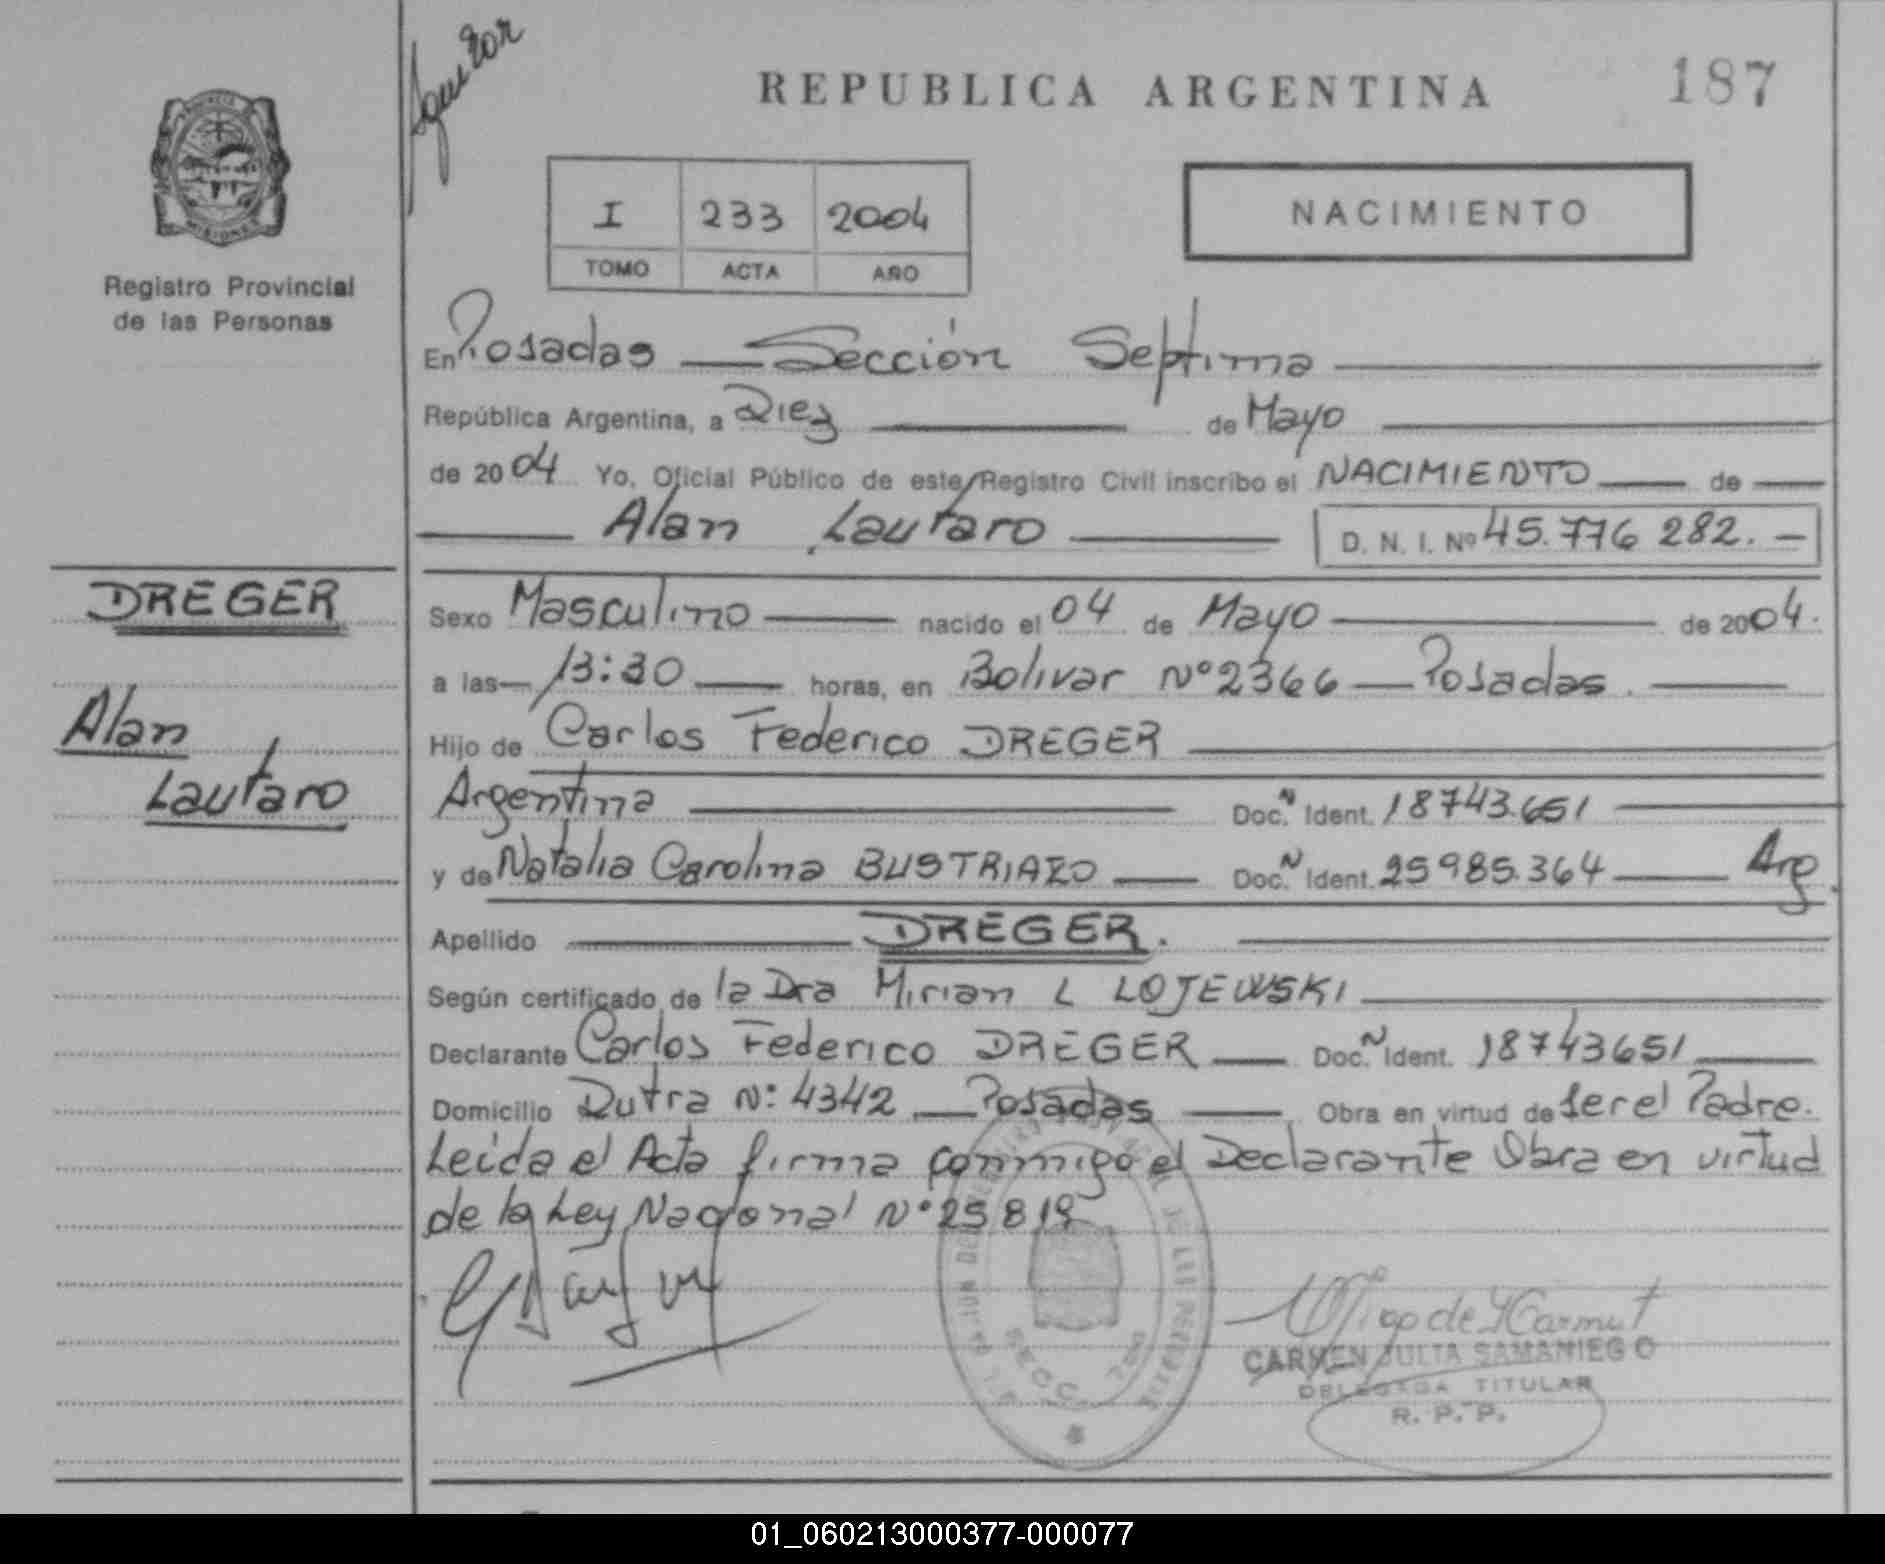 REPUBLICA ARGENTINA
187
I 233 2004
TOMO ACTA AÑO
NACIMIENTO
PROVINCIA
MISIONES
Registro Provincial
de las Personas
En Posadas — Sección Septima
República Argentina, a Diez de Mayo
de 2004 Yo, Oficial Público de este Registro Civil inscribo el NACIMIENTO de
Alan Lautaro D. N. I. Nº 45.776 282. —
DREGER
Alan
Lautaro
Sexo Masculino nacido el 04 de Mayo de 2004.
a las 13:30 horas, en Bolivar Nº 2366 — Posadas.
Hijo de Carlos Federico DREGER
Argentina Doc. N Ident. 18743.651
y de Natalia Carolina BUSTRIAZO Doc. N Ident. 25985.364 Arg.
Apellido DREGER.
Según certificado de la Dra Mirian L LOJEWSKI
Declarante Carlos Federico DREGER Doc. N Ident. 18743651
Domicilio Dutra N: 4342 — Posadas Obra en virtud de ser el Padre.
Leida el Acta firma conmigo el Declarante Obra en virtud
de la Ley Nacional Nº 25 819
CARMEN JULIA SAMANIEGO
DELEGADA TITULAR
R. P. P.
01_060213000377-000077